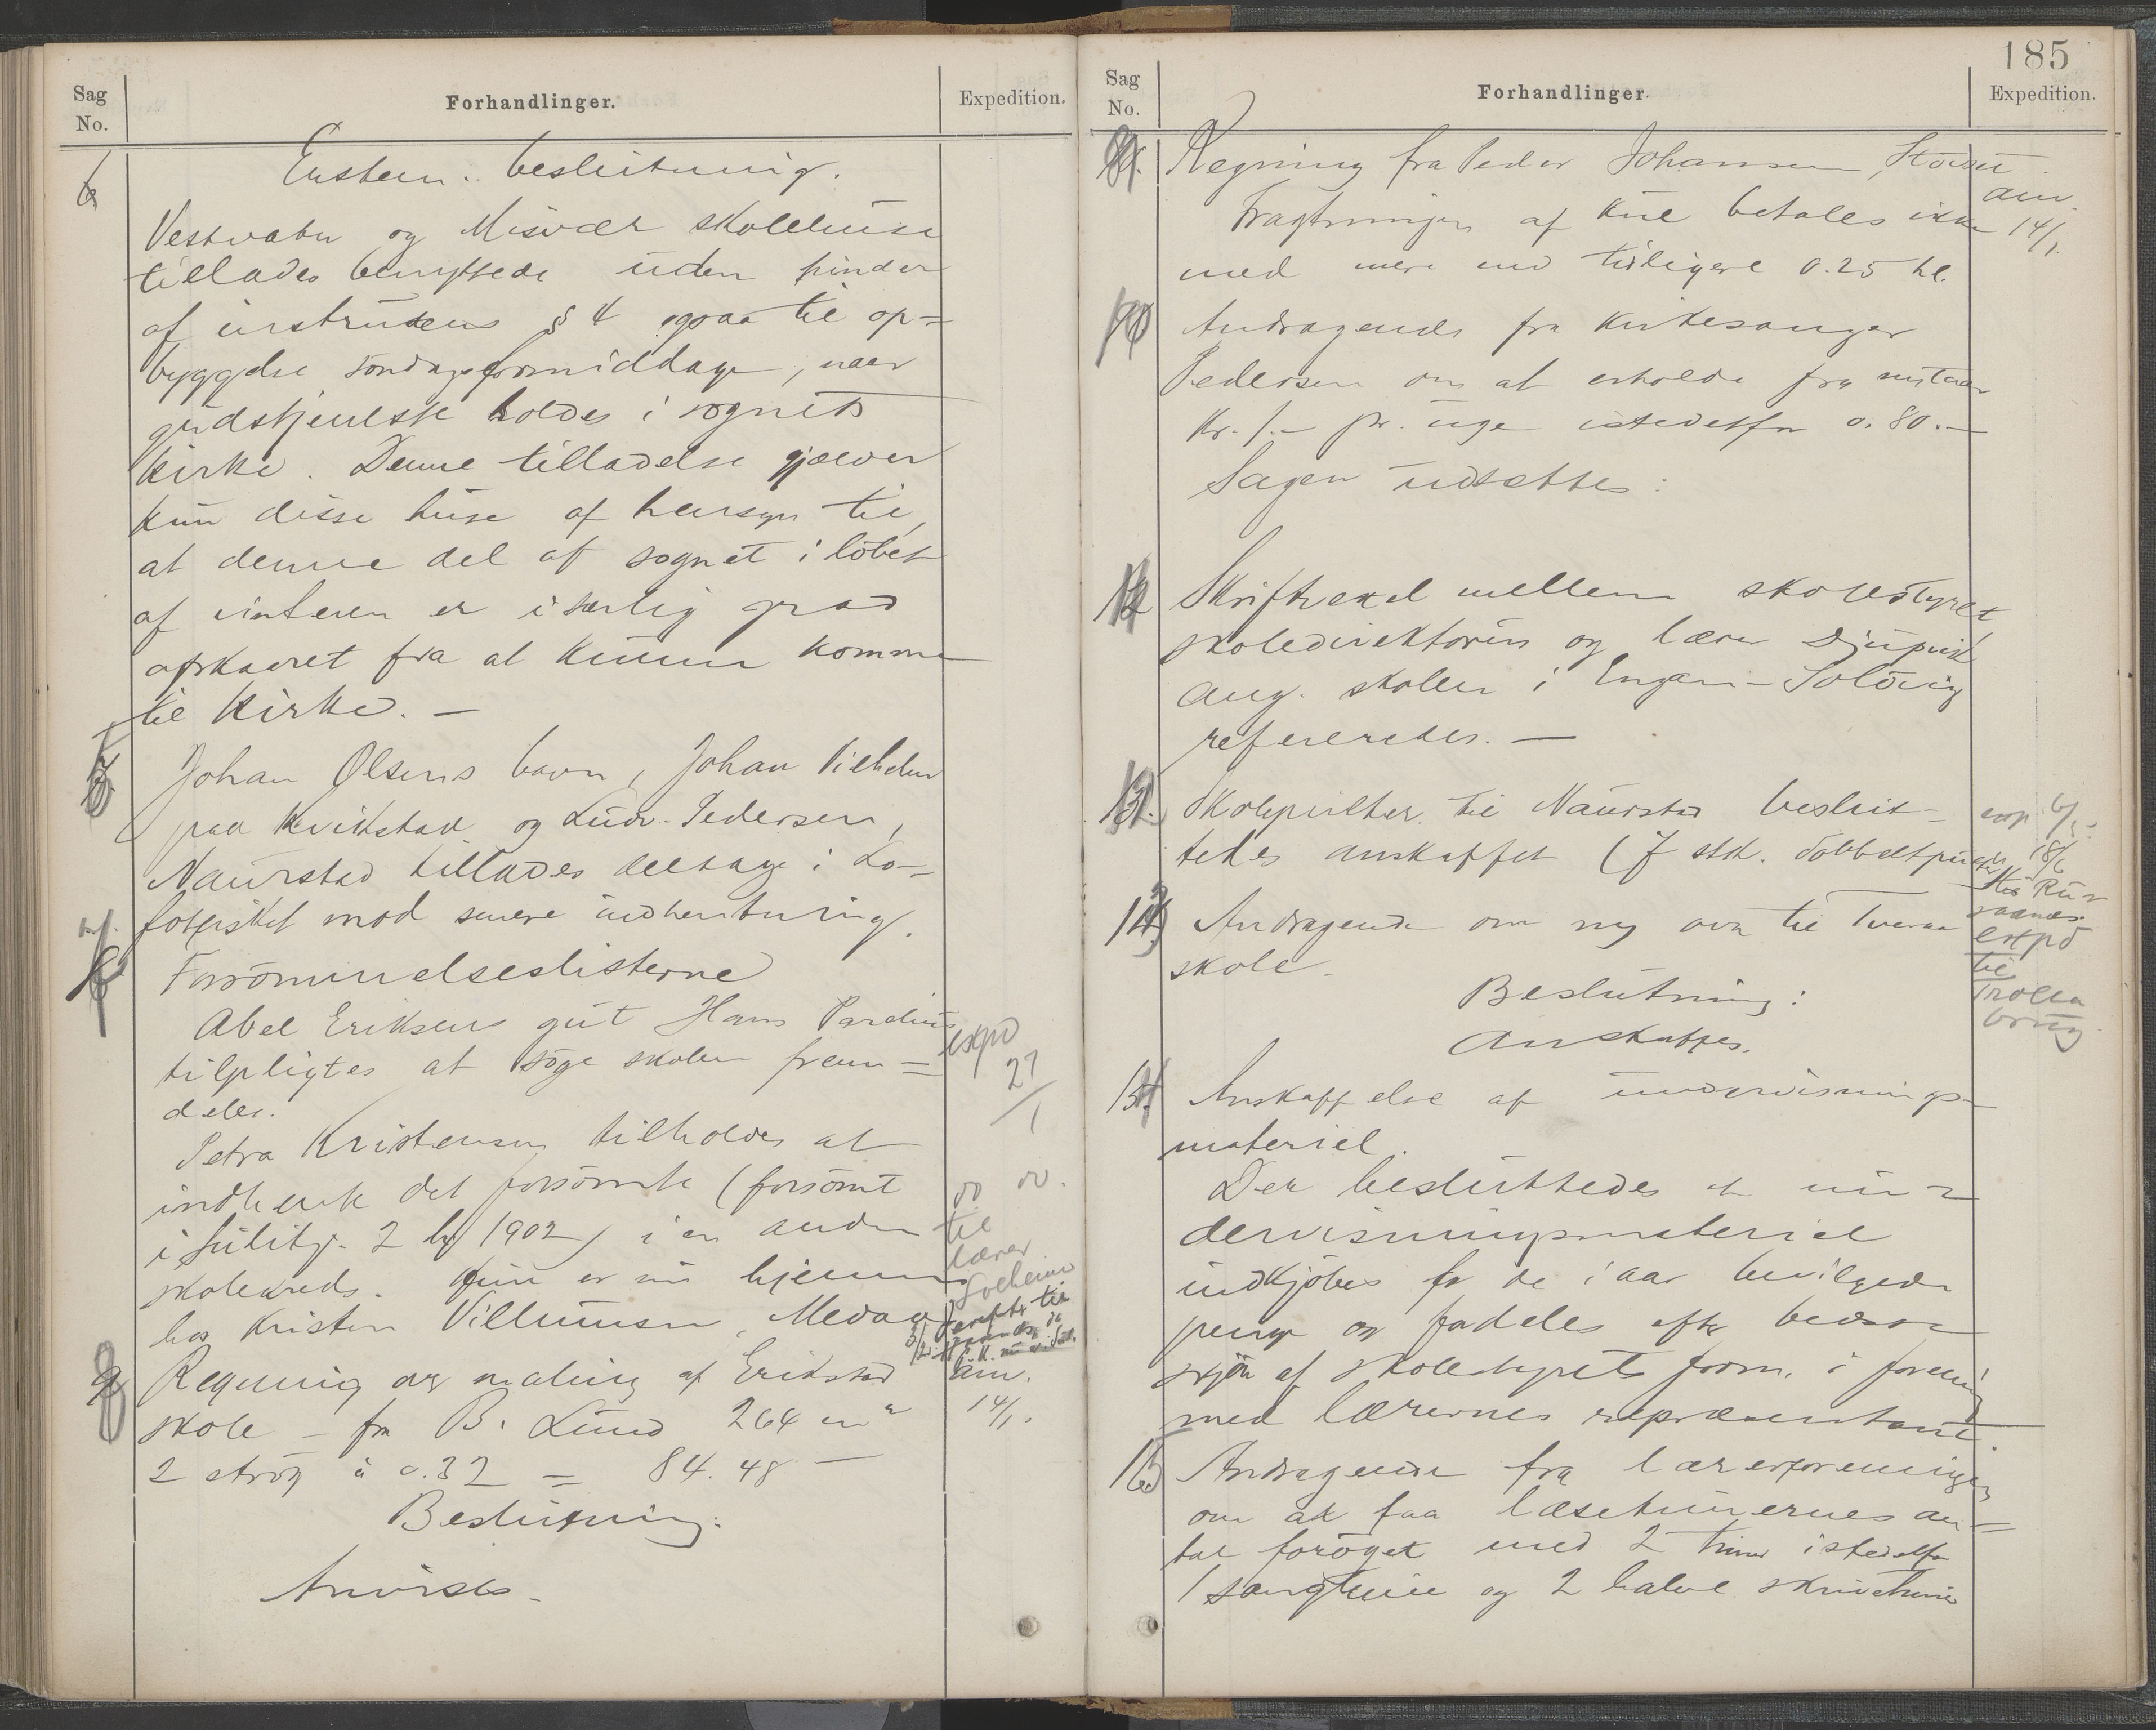 Sag
No.
Forhandlinger.
Expedition.
Enstem. beslutning.
6
Vestvatn og Misvær skolehuse
tillades benyttede uden hinder
af instruxens § 4 ogsaa til op=
byggelse søndagsformiddage, naar
gudstjeneste holdes i sognets
kirke. Denne tilladelse gjælder
kun disse huse af hensyn til,
at denne del af sognet i løbet
af vinteren er i særlig grad
afskaaret fra at kunne komme
til kirke. —
Johan Olsens barn, Johan Vilhelm
paa Kvikstad og Ludv. Pedersen,
Naurstad tillades deltage i Lo-
fotfisket mod senere indhentning.
Forsømmelseslisterne
Abel Eriksens gut Hans Parelius
tilpligtes at søge skolen frem=
deles.
expd
27/1
Petra Kristensen tilholdes at
indhente det forsømte (forsømt
i Sulitj. 2 1902) i en anden
skolekreds. Hun er nu hjemme
hos Kristen Villumsen, Medaa
do do.
til
lærer
Solhem
Regning over maling af Erikstad
skole – fra B. Lund 264 m²
2 strøg à 0.32 = 84.48 —
anv.
14/1.
Beslutning:
Anvises.
185
Sag
No.
Forhandlinger.
Expedition.
Regning fra Peder Johansen, Storvik
Fragtningen af kul betales ikke
med mere end tidligere 0.25 hl.
anv.
14/1.
10
Andragende fra kirkesanger
Pedersen om at erholde fra nytaar
Kr. 1.– pr. uge istedetfor 0.80.—
Sagen udsættes:
12
Skriftvexel mellem skolestyret,
skoledirektøren og lærer Djupvik
ang. skolen i Engan–Solvig
refereredes. —
13.
Skolepulter til Naurstad beslut-
tedes anskaffet (7 stk. dobbeltpulter
exp. 6/5
18/6
14)
Andragende om ny ovn til Tveraa
skole.
expd
til
Trolla
brug
Beslutning:
Anskaffes.
Anskaffelse af undervisnings-
materiel.
Der besluttedes at un=
dervisningsmateriel
indkjøbes for de i aar bevilgede
penge og fordeles efter bedste
skjøn af skolestyrets form. i forening
med lærernes repræsentant.
16)
Andragende fra lærerforeningen
om at faa læsetimernes an=
tal forøget med 2 timer istedetfor
1 sangtime og 2 halve skrivetimer